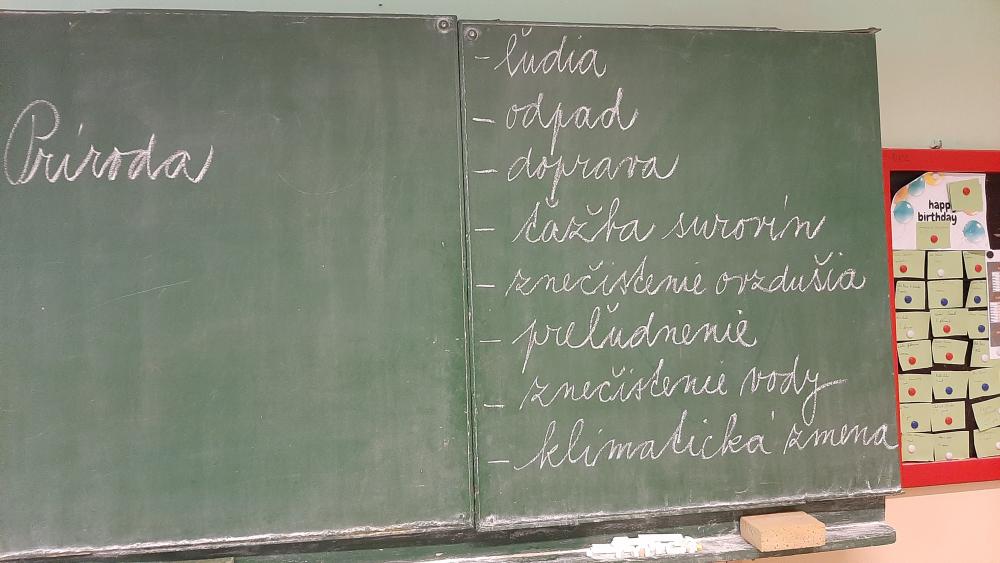 Príroda
- ľudia
- odpad
- doprava
- ťažba surovín
- znečistenie ovzdušia
- preľudnenie
- znečistenie vody
- klimatická zmena
happy
birthday